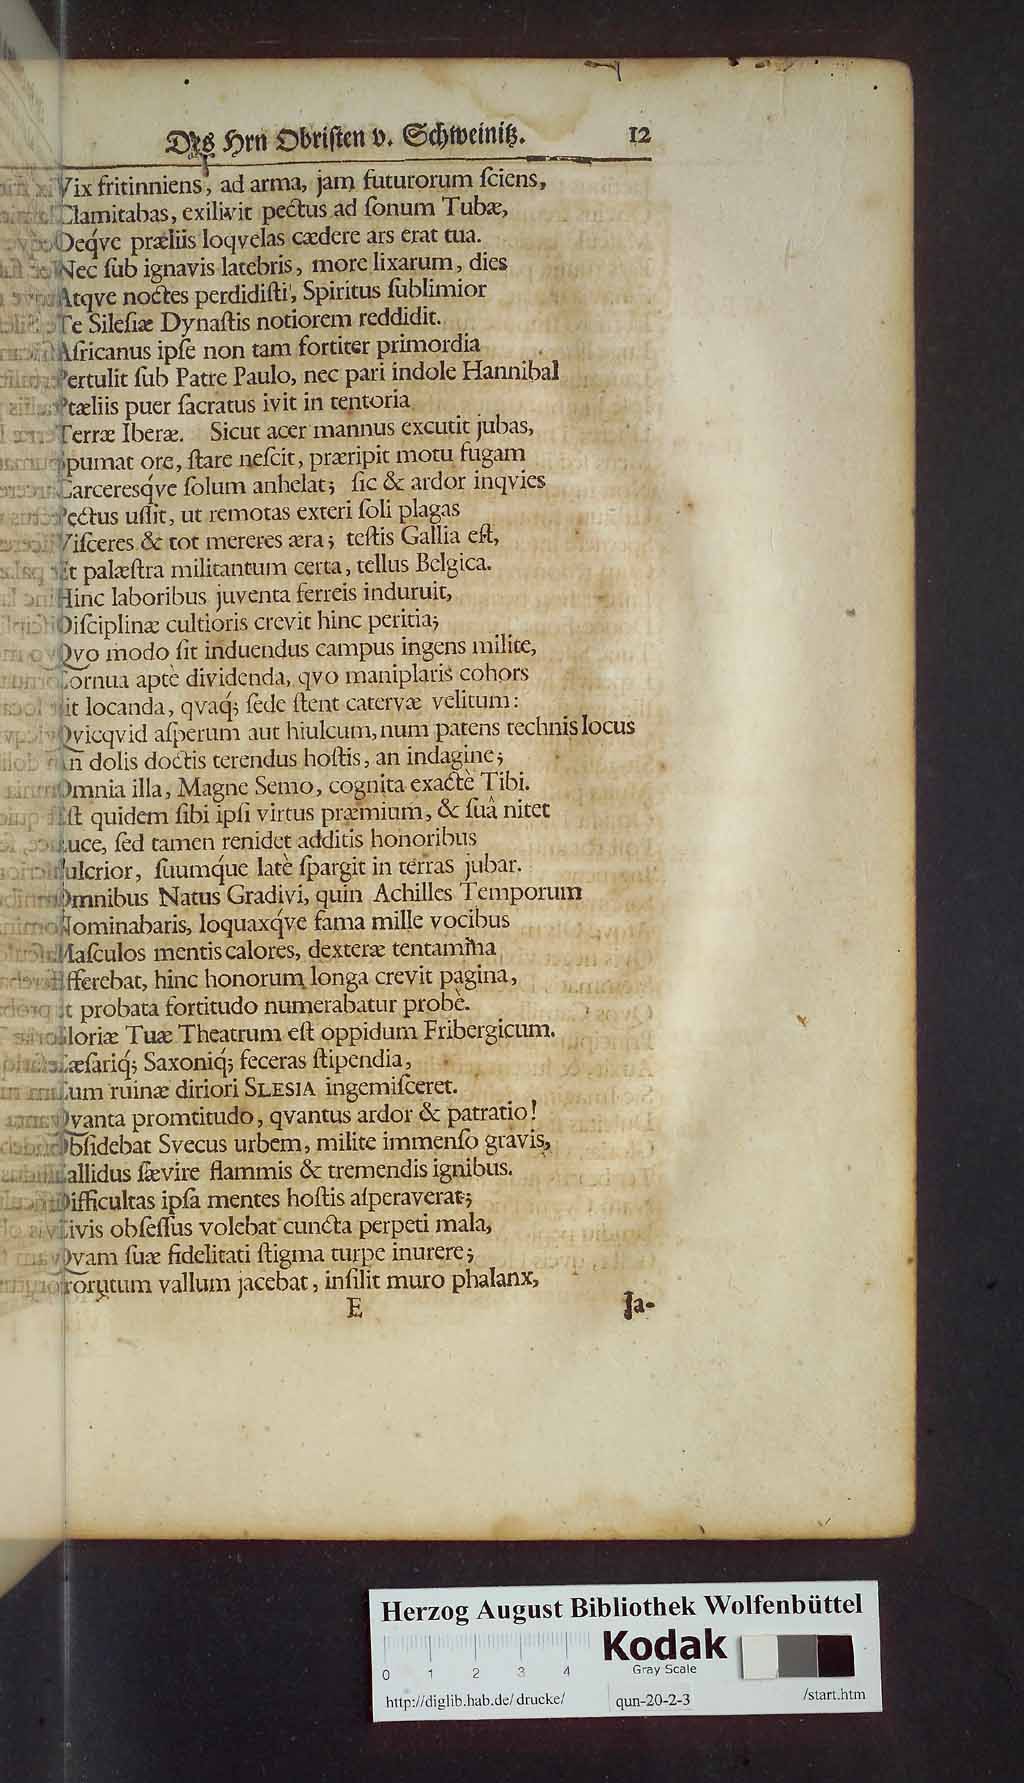 Des Hrn Obristen v. Schweinitz. 12
Vix fritinniens, ad arma, jam futurorum ſciens,
Clamitabas, exilivit pectus ad ſonum Tubæ,
Deq́ve præliis loqvelas cædere ars erat tua.
Nec ſub ignavis latebris, more lixarum, dies
Atqve noctes perdidiſti, Spiritus ſublimior
Te Sileſiæ Dynaſtis notiorem reddidit.
Africanus ipſe non tam fortiter primordia
Pertulit ſub Patre Paulo, nec pari indole Hannibal
Ptæliis puer ſacratus ivit in tentoria
Terræ Iberæ. Sicut acer mannus excutit jubas,
Spumat ore, ſtare neſcit, præripit motu fugam
Carceresq́ve ſolum anhelat; ſic & ardor inqvies
Pectus uſſit, ut remotas exteri ſoli plagas
Viſceres & tot mereres æra; teſtis Gallia eſt,
Et palæſtra militantum certa, tellus Belgica.
Hinc laboribus juventa ferreis induruit,
Diſciplinæ cultioris crevit hinc peritia;
Qvo modo ſit induendus campus ingens milite,
Cornua aptè dividenda, qvo maniplaris cohors
Sit locanda, qvaq́; ſede ſtent catervæ velitum:
Qvicqvid aſperum aut hiulcum, num patens technis locus
An dolis doctis terendus hoſtis, an indagine;
Omnia illa, Magne Semo, cognita exactè Tibi.
Eſt quidem ſibi ipſi virtus præmium, & ſuâ nitet
Luce, ſed tamen renidet additis honoribus
Pulcrior, ſuumq́ue latè ſpargit in terras jubar.
Omnibus Natus Gradivi, quin Achilles Temporum
Nominabaris, loquaxq́ve fama mille vocibus
Maſculos mentis calores, dexteræ tentamina
Efferebat, hinc honorum longa crevit pagina,
Et probata fortitudo numerabatur probè.
Gloriæ Tuæ Theatrum eſt oppidum Fribergicum.
Cæſariq́; Saxoniq́; feceras ſtipendia,
Cum ruinæ diriori SLESIA ingemiſceret.
Qvanta promtitudo, qvantus ardor & patratio!
Obſidebat Svecus urbem, milite immenſo gravis,
Callidus ſævire flammis & tremendis ignibus.
Difficultas ipſa mentes hoſtis aſperaverat;
Civis obſeſſus volebat cuncta perpeti mala,
Qvam ſuæ fidelitati ſtigma turpe inurere;
Prorutum vallum jacebat, inſilit muro phalanx,
E Ja-
Herzog August Bibliothek Wolfenbüttel
Kodak
Gray Scale
0 1 2 3 4
http://diglib.hab.de/drucke/ qun-20-2-3 /start.htm